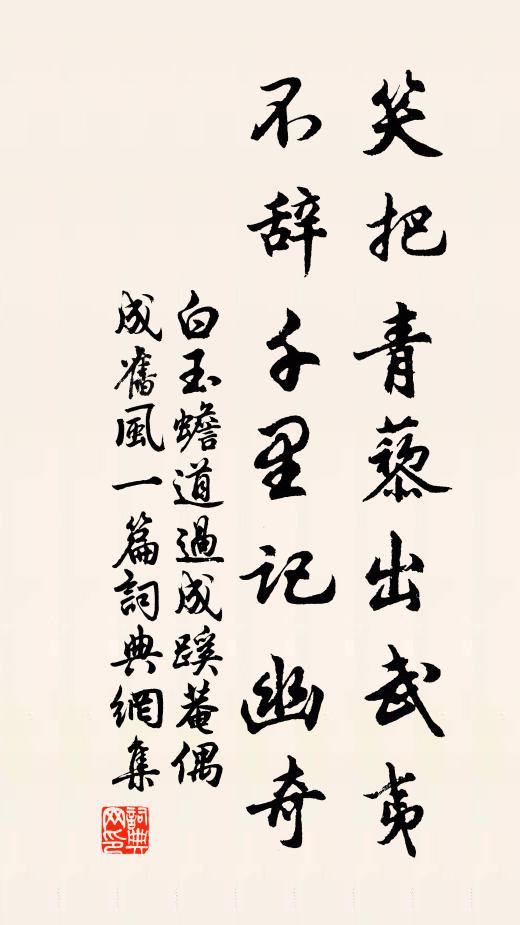 笑把青藜出武夷
不辞千里记幽奇
白玉蟾道過成蹊菴偶
成舊風一篇詞典網集
詞典网印